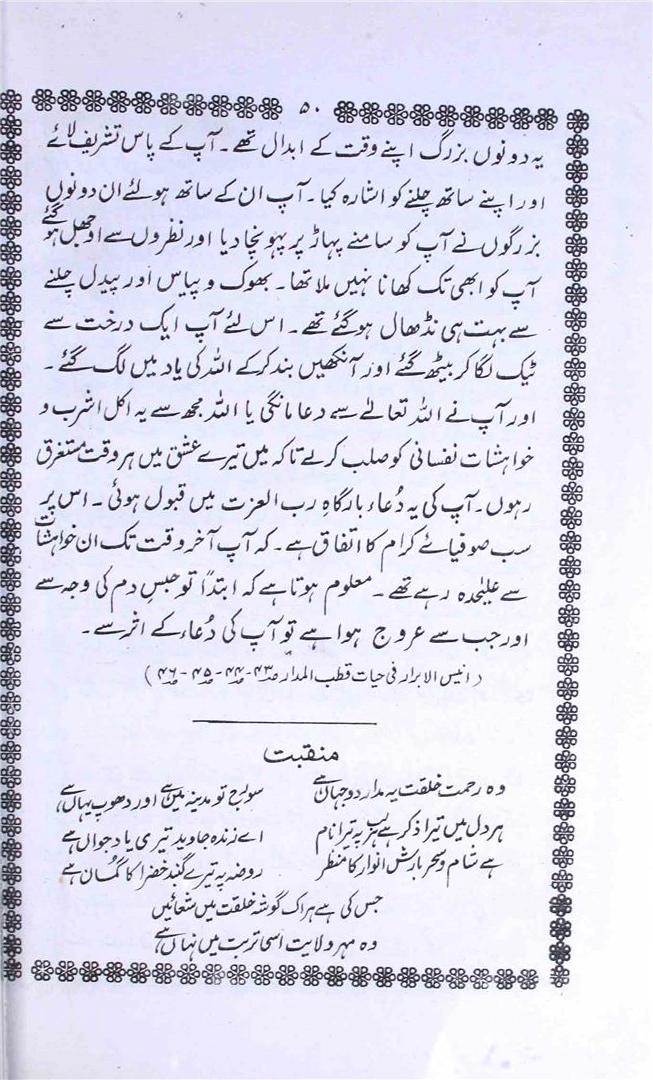 ۵۰
یہ دونوں بزرگ اپنے وقت کے ابدال تھے۔ آپ کے پاس تشریف لائے
اور اپنے ساتھ چلنے کو اشارہ کیا۔ آپ ان کے ساتھ ہولئے ان دونوں
بزرگوں نے آپ کو سامنے پہاڑ پر پہونچا دیا اور نظروں سے اوجھل ہو گئے
آپ کو ابھی تک کھانا نہیں ملا تھا۔ بھوک و پیاس اور پیدل چلنے
سے بہت ہی نڈھال ہو گئے تھے۔ اس لئے آپ ایک درخت سے
ٹیک لگا کر بیٹھ گئے اور آنکھیں بند کر کے اللہ کی یاد میں لگ گئے۔
اور آپ نے اللہ تعالےٰ سے دعا مانگی یا اللہ مجھ سے یہ اکل اشرب و
خواہشات نفسانی کو صلب کرلے تاکہ میں تیرے عشق میں ہر وقت مستغرق
رہوں۔ آپ کی یہ دُعاء بارگاہِ رب العزت میں قبول ہوئی۔ اس پر
سب صوفیائے کرام کا اتفاق ہے۔ کہ آپ آخر وقت تک ان خواہشات
سے علیٰحدہ رہے تھے۔ معلوم ہوتا ہے کہ ابتداً تو حبسِ دم کی وجہ سے
اور جب سے عروج ہوا ہے تو آپ کی دُعاء کے اثر سے۔
(انیس الابرار فی حیات قطب المدار صـ۴۳-۴۴-۴۵-۴۶)
منقبت
وہ رحمت خلقت یہ مدار دوجہاں ہے سورج تو مدینہ میں ہے اور دھوپ یہاں ہے
ہر دل میں تیرا ذکر ہے ہر لب پہ تیرا نام اے زندہ جاوید تیری یاد جواں ہے
ہے شام و سحر بارش انوار کا منظر روضہ پہ تیرے گنبد خضرا کا گماں ہے
جس کی ہے ہر اک گوشہ خلقت میں شعائیں
وہ مہر ولایت اسی تربت میں نہاں ہے